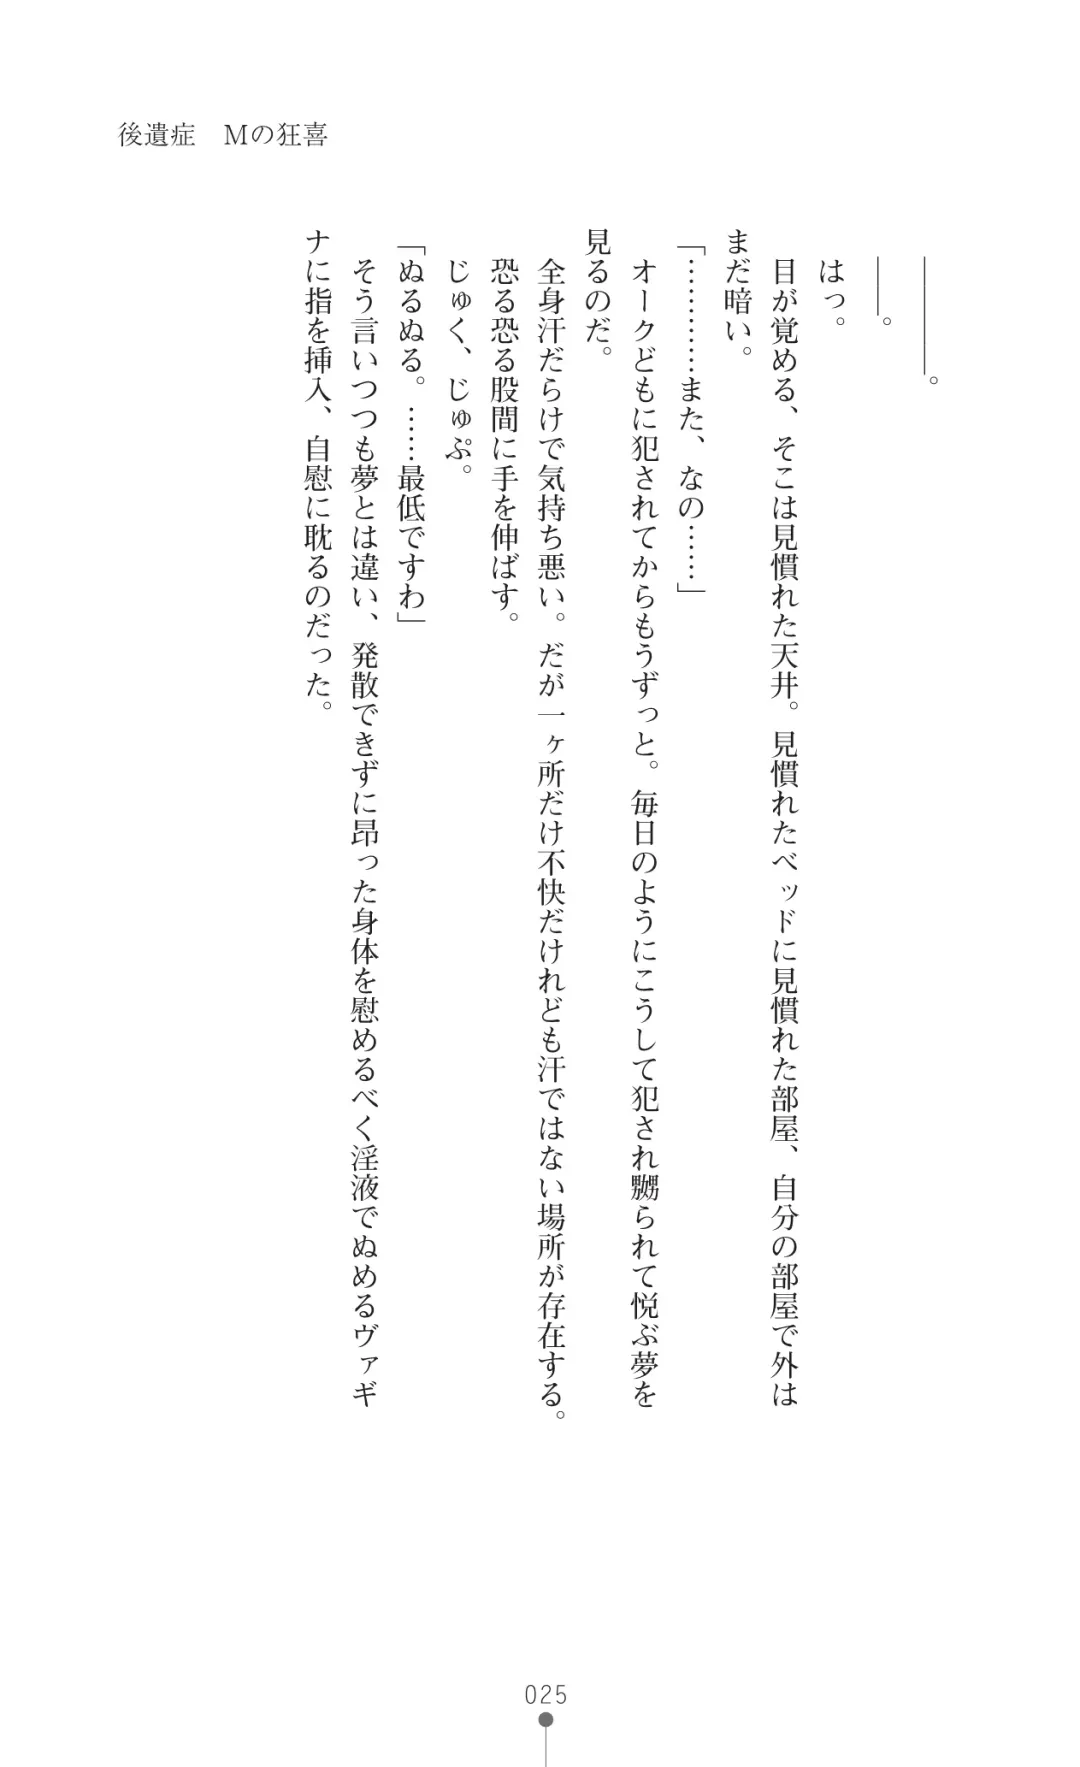 後遺症　Mの狂喜
――――。
――。
はっ。
目が覚める、そこは見慣れた天井。見慣れたベッドに見慣れた部屋、自分の部屋で外は
まだ暗い。
「…………また、なの……」
オークどもに犯されてからもうずっと。毎日のようにこうして犯され嬲られて悦ぶ夢を
見るのだ。
全身汗だらけで気持ち悪い。だが一ヶ所だけ不快だけれども汗ではない場所が存在する。
恐る恐る股間に手を伸ばす。
じゅく、じゅぷ。
「ぬるぬる。……最低ですわ」
そう言いつつも夢とは違い、発散できずに昂った身体を慰めるべく淫液でぬめるヴァギ
ナに指を挿入、自慰に耽るのだった。
025